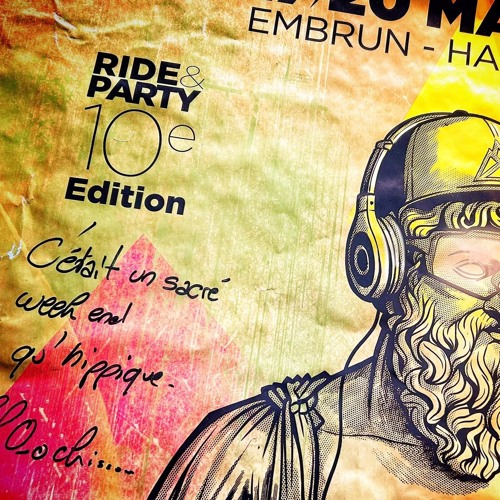 20 MA
EMBRUN - HA
RIDE &
PARTY
10e
Edition
C'était un sacré
week end
qu'hippique.